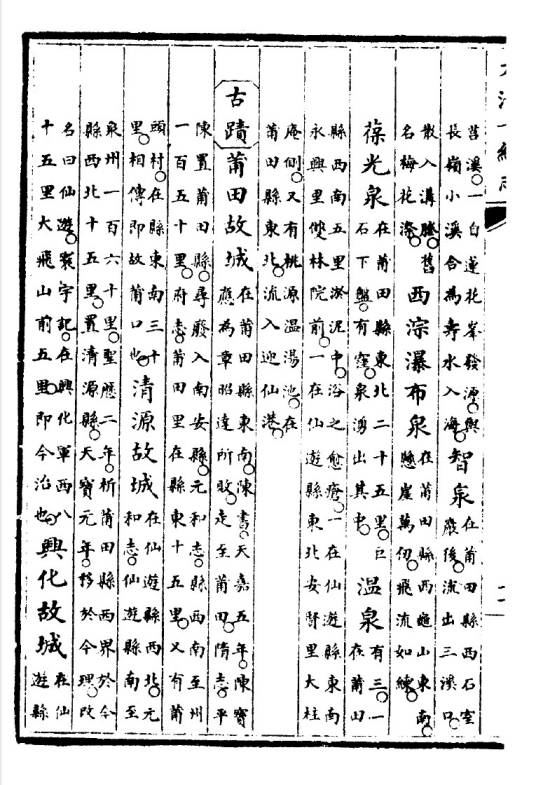 莒溪一白蓮花峯發源與長嶺小溪合為壽水入海智泉在莆田縣西石室巖後流出三溪口
散入溝塍舊名梅花漈西淙瀑布泉在莆田縣西龜山東南懸崖萬仞飛流如練
葆光泉在莆田縣東北二十五里巨石下盤有窪泉湧出其中溫泉有三一在莆田
縣西南五里淤泥中浴之愈瘡一在仙遊縣東南永興里雙林院前一在仙遊縣東北安賢里大柱
庵側又有桃源溫湯池在莆田縣東北流入迎仙港
古蹟莆田故城在莆田縣東南陳書天嘉五年陳寶應為章昭達所敗走至莆田隋志平
陳置莆田縣尋廢入南安縣元和志縣西南至州一百五十里府志莆田里在縣東十五里又有莆
頭村在縣東南三十里相傳即故莆口也清源故城在仙遊縣西北元和志仙遊縣南至
泉州一百六十里聖應二年析莆田縣西界於今縣西北十五里置清源縣天寶元年移於今理改
名曰仙遊寰宇記在興化軍西八十五里大飛山前五里即今治也興化故城在仙遊縣